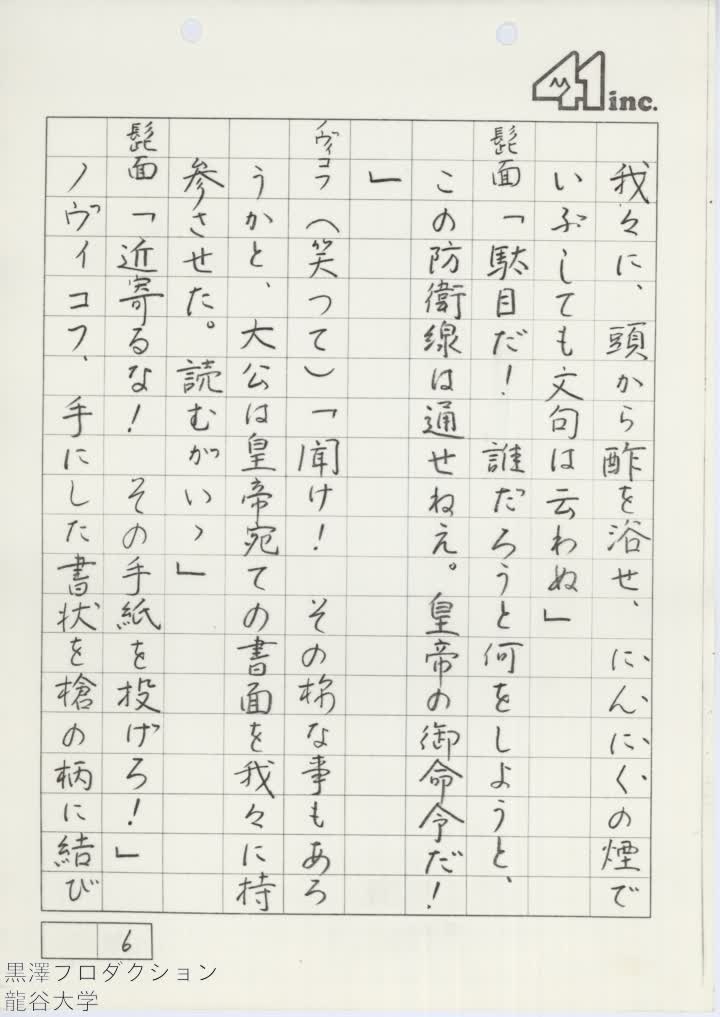 41 inc.
我々に、頭から酢を浴せ、にんにくの煙で
いぶしても文句は云わぬ」
髭面「駄目だ！　誰だろうと何をしようと、
この防衛線は通せねえ。皇帝の御命令だ！
」
ノヴィコフ（笑って）「聞け！　その様な事もあろ
うかと、大公は皇帝宛ての書面を我々に持
参させた。読むがいゝ」
髭面「近寄るな！　その手紙を投げろ！」
ノヴィコフ、手にした書状を槍の柄に結び
6
黒澤プロダクション
龍谷大学